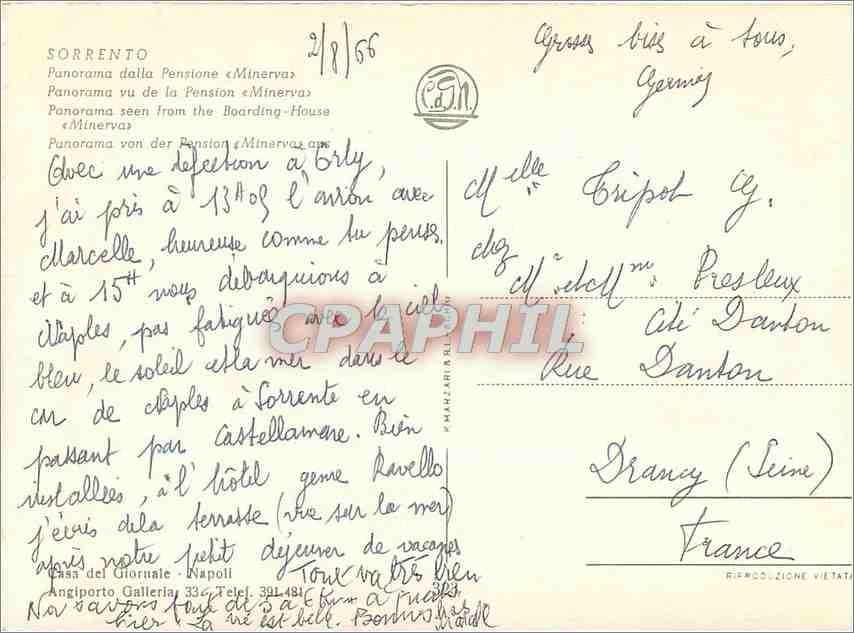 SORRENTO
Panorama dalla Pensione «Minerva»
Panorama vu de la Pension «Minerva»
Panorama seen from the Boarding-House
«Minerva»
Panorama von der Pension «Minerva» aus
2/8/66
C.d.G.N.
Grosses bises à tous,
Avec une défection à Orly,
j'ai pris à 13H05 l'avion avec
Marcelle, heureuse comme tu penses.
et à 15H nous débarquions à
Naples, pas fatiguées avec le ciel
bleu, le soleil et la mer dans le
car de Naples à Sorrente en
passant par Castellamare. Bien
installées, à l'hôtel genre Ravello
j'écris de la terrasse (vue sur la mer)
après notre petit déjeuner de vacances
Tout va très bien
Ns avons fait de 5 à 6 km à pieds
hier. La vie est belle. Bonnes
Casa del Giornale - Napoli
Angiporto Galleria 33 - Telef. 391.481
303
P. MARZARI & R.L.
CPAPHIL
Melle Tripot G.
chez
Mr et Mme Presleux
Cité Danton
Rue Danton
Drancy (Seine)
France
RIPRODUZIONE VIETATA